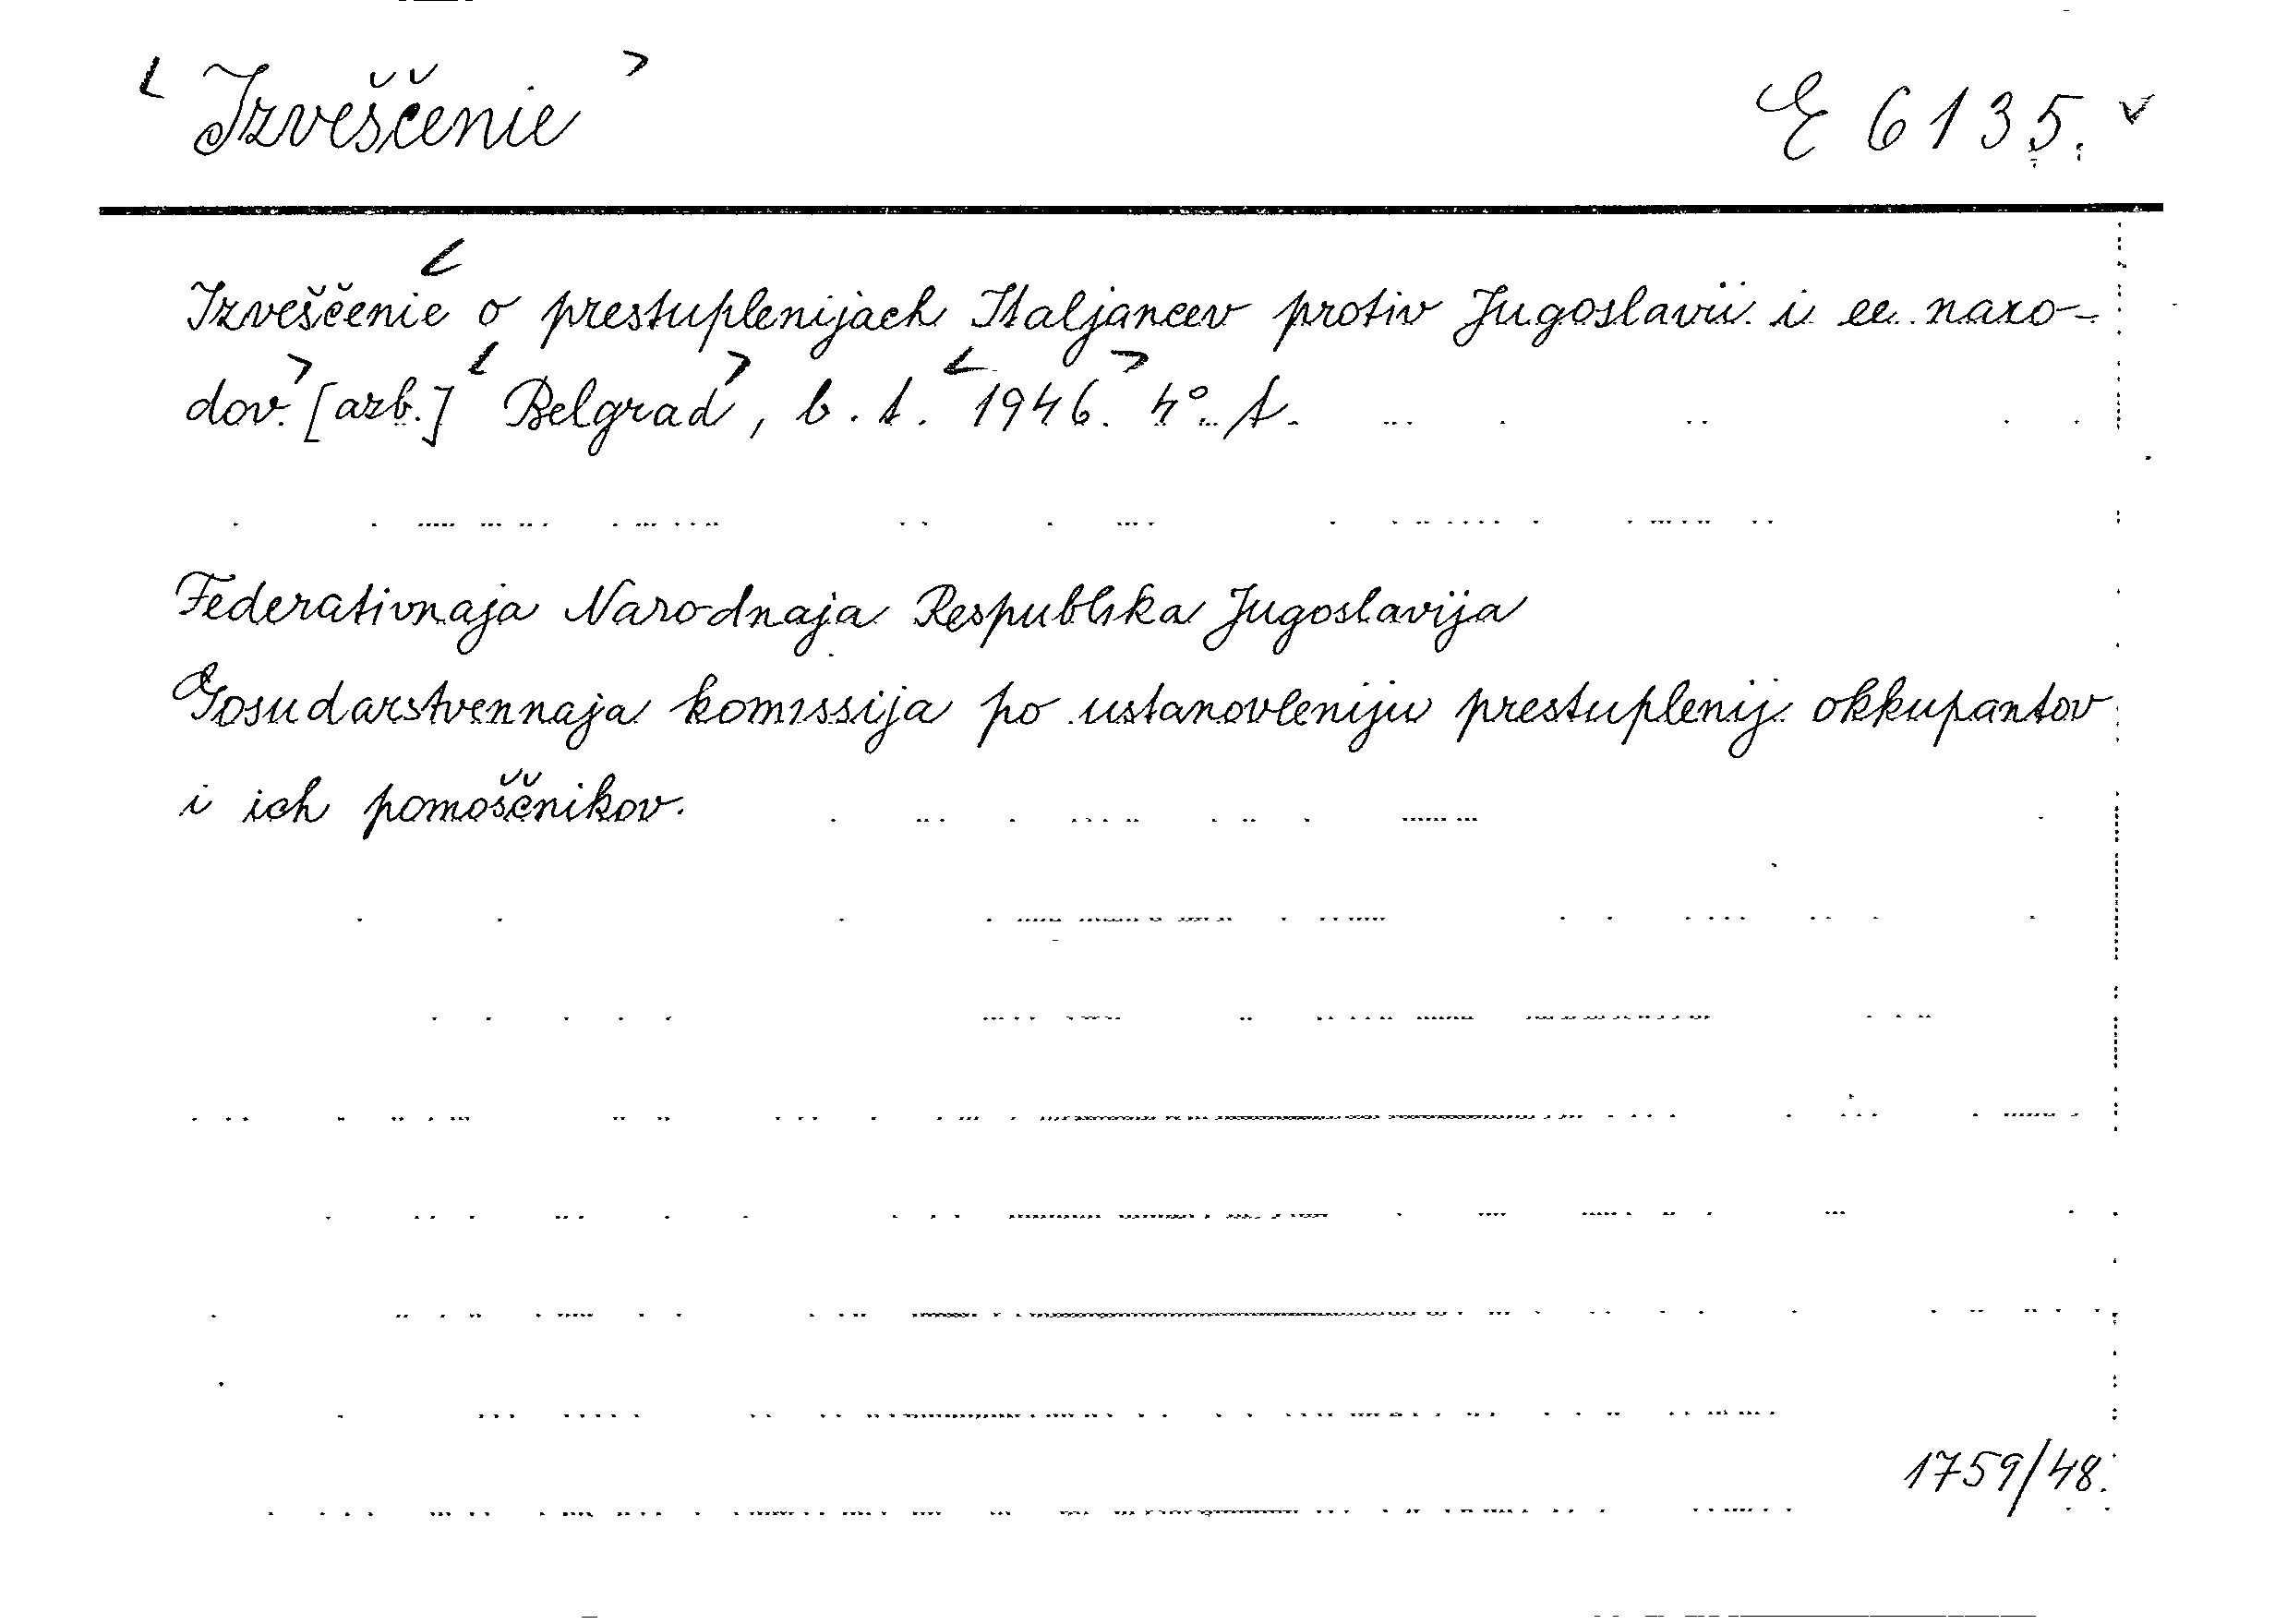 Izveščenie E 6135.
Izveščenie o prestuplenijach Italjancev protiv Jugoslavii i ee naro-
dov. [azb.] Belgrad, b. t. 1946. 4°. A.
Federativnaja Narodnaja Respublika Jugoslavija
Gosudarstvennaja komissija po ustanovleniju prestuplenij okkupantov
i ich pomoščnikov.
1759/48.